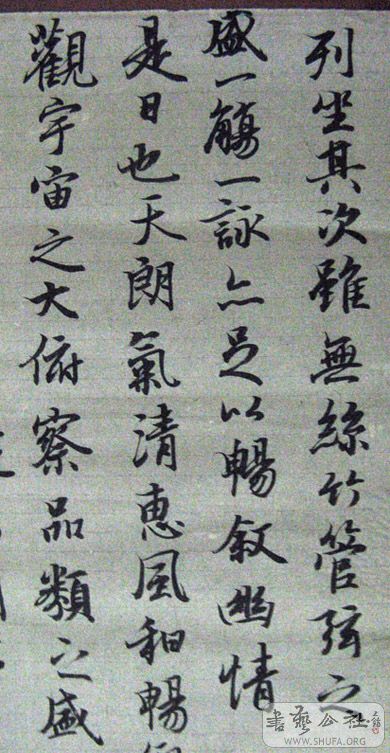 列坐其次雖無絲竹管弦之
盛一觴一詠亦足以暢敘幽情
是日也天朗氣清惠風和暢
觀宇宙之大俯察品類之盛
書藝公社
WWW.SHUFA.ORG